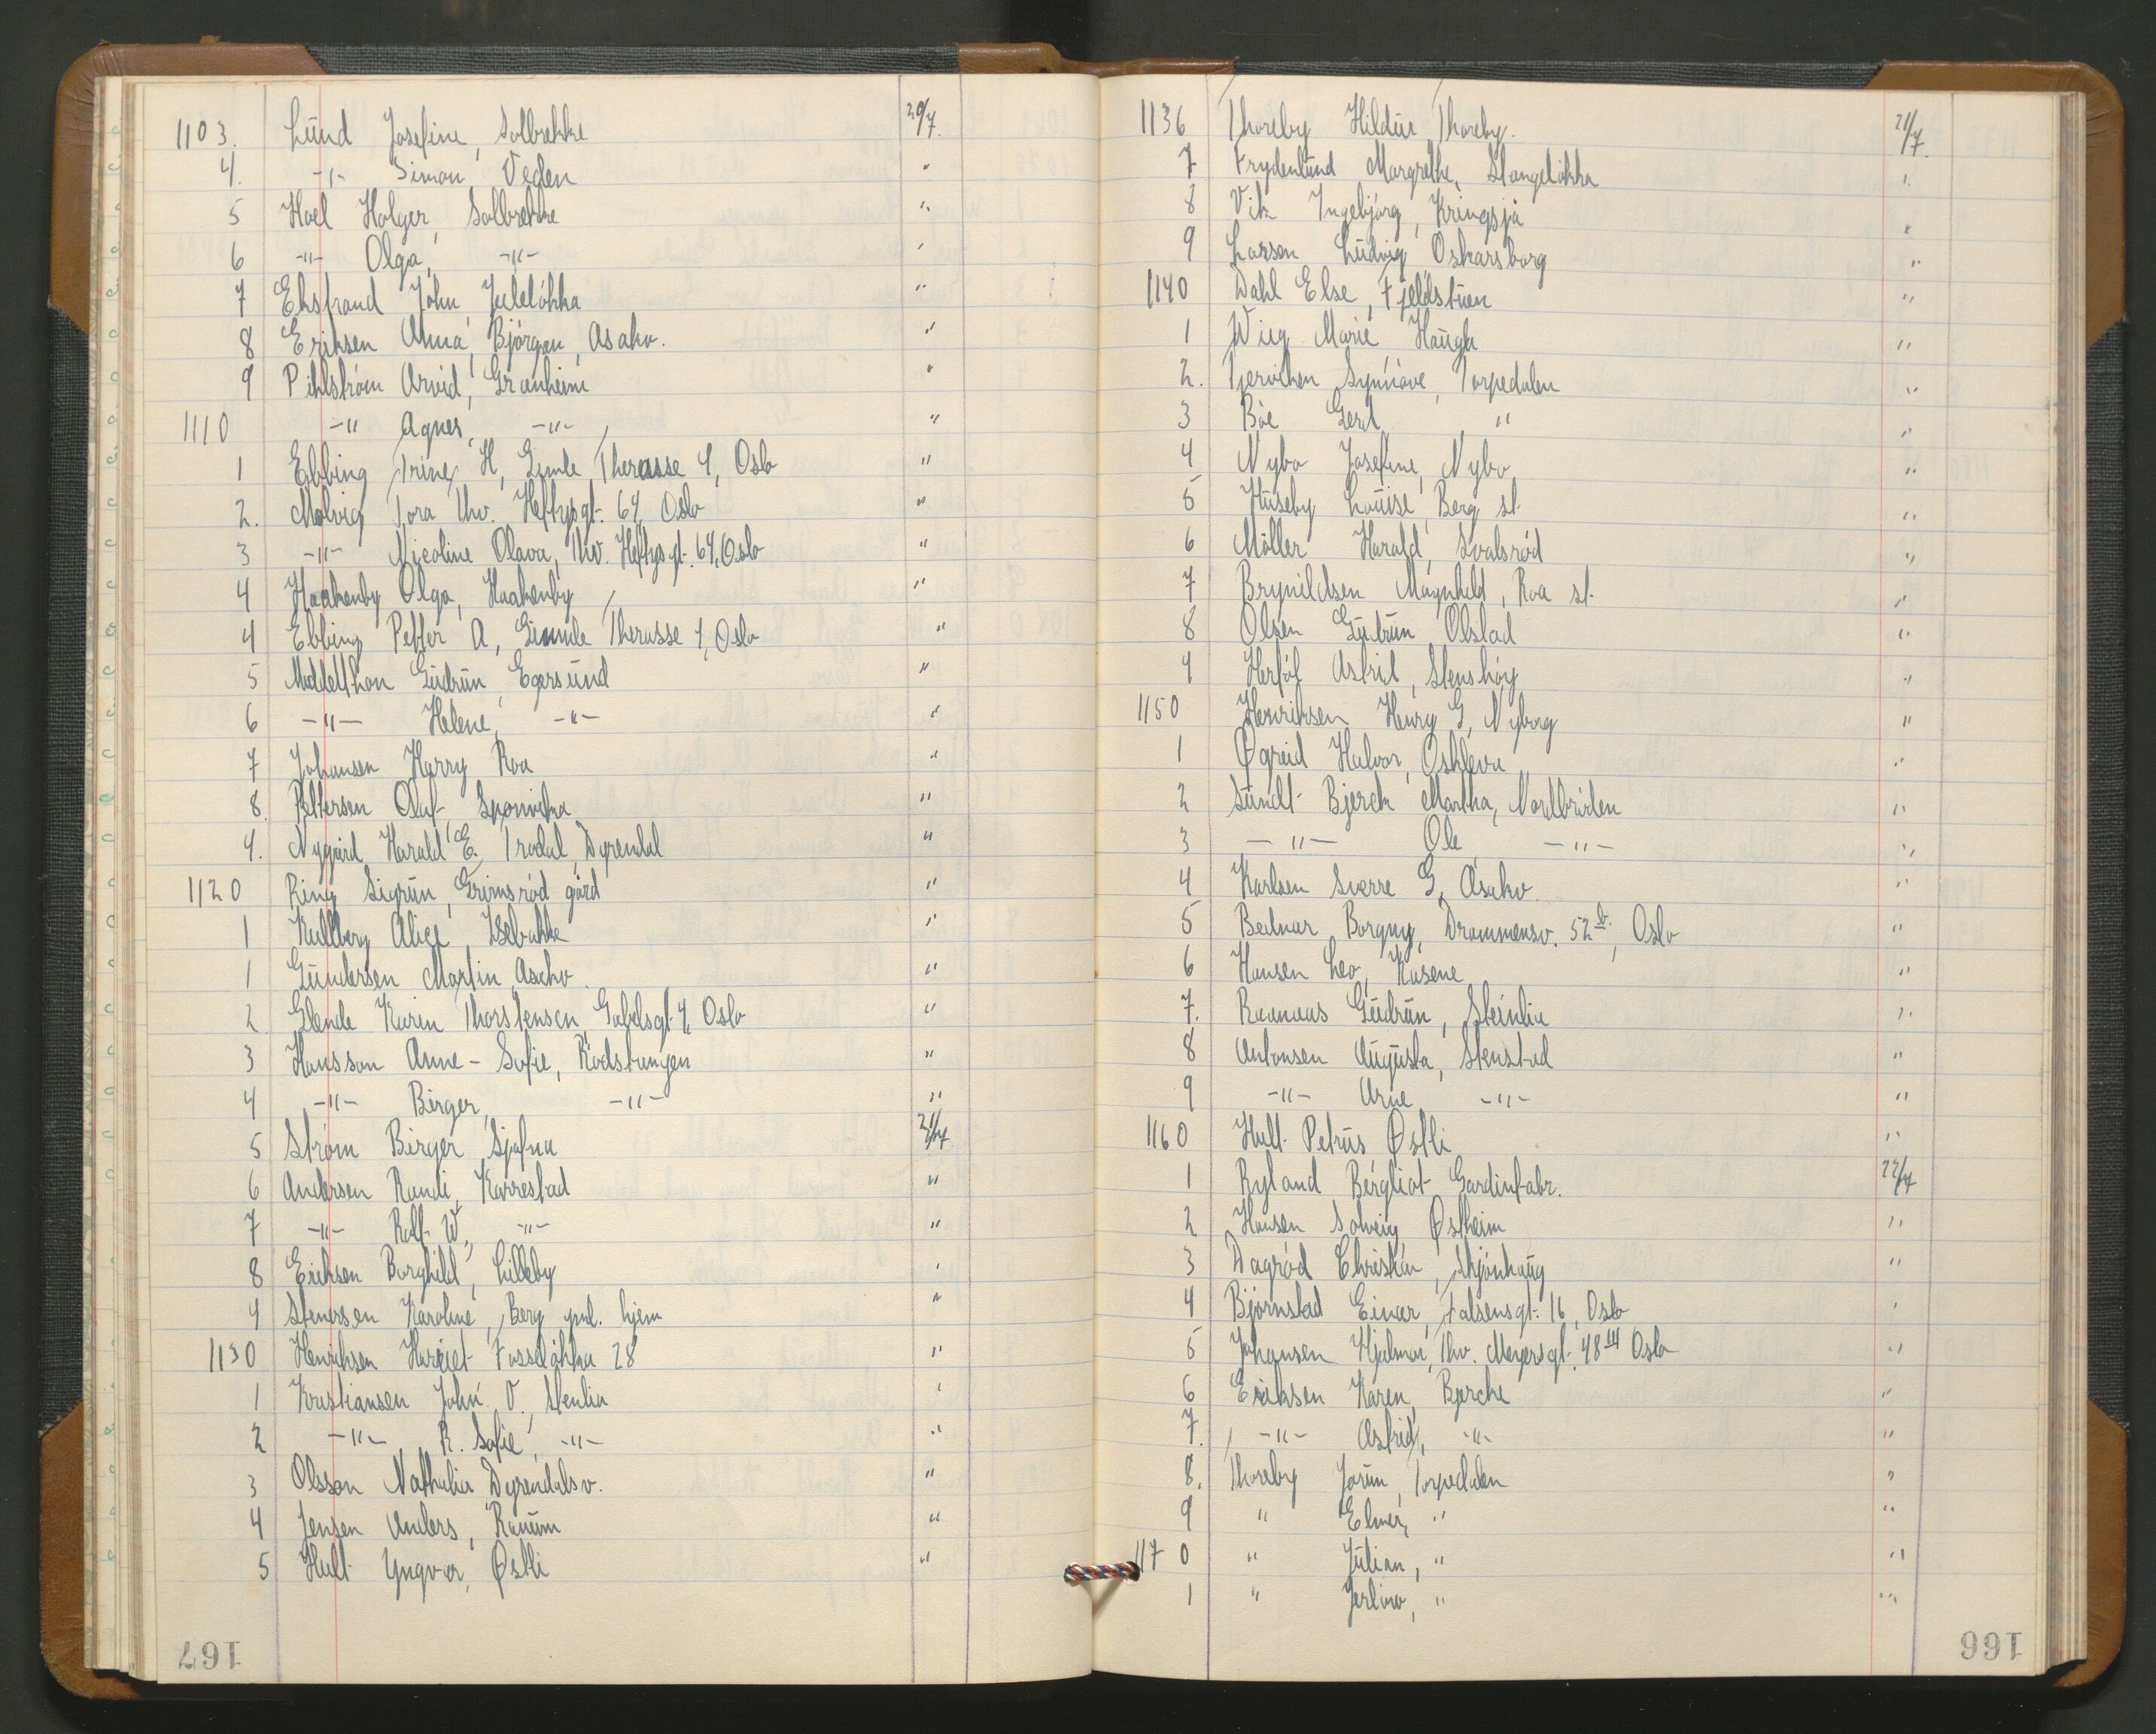 1103. Lund Josefine, Solbrekke 20/7.
4. -"- Simon, Veden "
5 Hoel Holger, Solbrekke "
6 -"- Olga, -"- "
7 Ekstrand John, Juleløkka "
8 Eriksen Anna, Björgan, Asakv. "
9 Pihlström Arvid, Granheim "
1110 -" Agnes, -"- "
1 Ebbing Trine H, Gimle Therasse 4, Oslo "
2. Molvig Tora Thv. Heftysgt. 64, Oslo "
3 -"- Nicoline Olava, Thv. Heftysgt. 64, Oslo "
4 Haakenby Olga, Haakenby "
4 Ebbing Petter A, Gimle Therasse 4, Oslo "
5 Middelthon Gudrun, Egersund "
6 -"- Helene, -"- "
7 Johansen Harry Roa "
8. Pettersen Oluf, Sponvika "
9. Nygård Harald E. Trodal, Dyrendal "
1120 Ring Sigrun, Grimsrød gård "
1 Kullberg Alice, Isebakke "
1 Gundersen Martin, Asakv. "
2 Glende Karin Thorstensen Gabelsgt 4, Oslo "
3 Hansson Anne-Sofie, Rødstangen "
4 -"- Birger, -"- "
5 Strøm Birger, Sjøfna 21/7
6 Andersen Randi, Karrestad "
7 -"- Rolf W, -"- "
8 Eriksen Borghild, Lilleby "
9 Stenersen Karoline, Berg gml. hjem "
1130 Henriksen Harriet Fosseløkka 28 "
1 Kristiansen John. O., Stenlia "
2 -"- R. Sofie, -"- "
3 Olsson Nathalia Dyrendalsv. "
4 Jensen Anders, Ranum "
5 Hult Yngvar, Østli "
167
1136 Thoreby Hildur, Thoreby. 21/7.
7 Frydenlund Margrethe, Stangeløkka "
8 Vik Ingebjørg, Kringsjå "
9 Larsen Ludvig, Oskarsborg "
1140 Dahl Else, Fjeldstuen "
1 Wiig Marie, Haugli "
2. Synnøve, Torpedalen "
3 Bøe Gerd, " "
4 Nybo Josefine, Nybo "
5 Huseby Louise, Berg st. "
6 Möller Harald, Svalsrød "
7 Brynildsen Magnhild, Roa st. "
8 Olsen Gudrun, Olstad "
9 Herføl Astrid, Stenshøy "
1150 Henriksen Henry G, Nyborg "
1 Øgreid Halvor, Oskleva "
2 Sundt Bjerck Martha, Nordbråten "
3 -"- Ole -"- "
4 Karlsen Sverre G, Asakv. "
5 Bednar Borgny, Drammensv. 52 b., Oslo "
6 Hansen Leo, Kasene "
7. Raanaas Gudrun, Steinlia "
8 Antonsen Augusta, Stenstad "
9 -"- Arne -"- "
1160 Hult Petrus, Østli "
1 Ryland Bergliot Gardinfabr. 22/7
2 Hansen Solveig, Østheim "
3 Dagrød Christian, Skjønhaug "
4 Bjørnstad Einar, Falsensgt. 16, Oslo "
5 Johansen Hjalmar, Thv. Meyersgt. 48 III Oslo "
6 Eriksen Karen, Bjercke "
7. -"- Astrid, -"- "
8. Thoreby Jorun, Torpedalen "
9 " Elmer, " "
1170 " Julian, " "
1 " Jerlow, " "
166